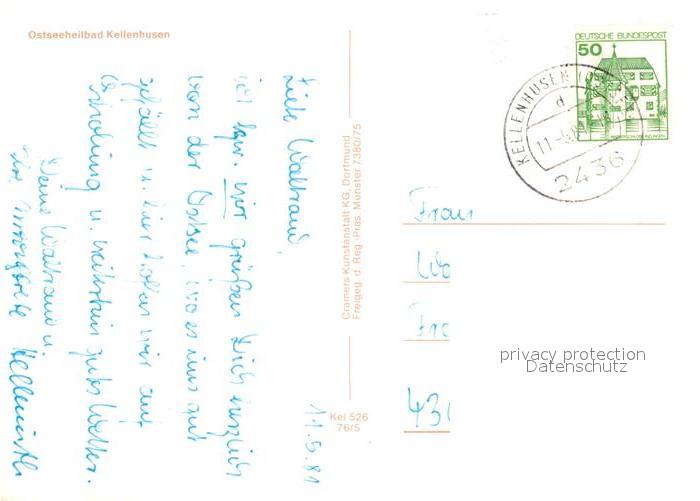 Ostseeheilbad Kellenhusen
11.5.81
Liebe Waltraud,
ich bzw. wir grüßen Dich herzlich
von der Ostsee, wo es uns gut
gefällt u. hier hoffen wir auf
Erholung u. weiterhin gutes Wetter.
Deine Waltraud u.
Cramers Kunstanstalt KG, Dortmund
Freigeg. d. Reg. Präs. Münster 7380/75
Kel 526
76/5
DEUTSCHE BUNDESPOST
50
KELLENHUSEN
d
2436
Frau
Wa
Fra
43
privacy protection
Datenschutz